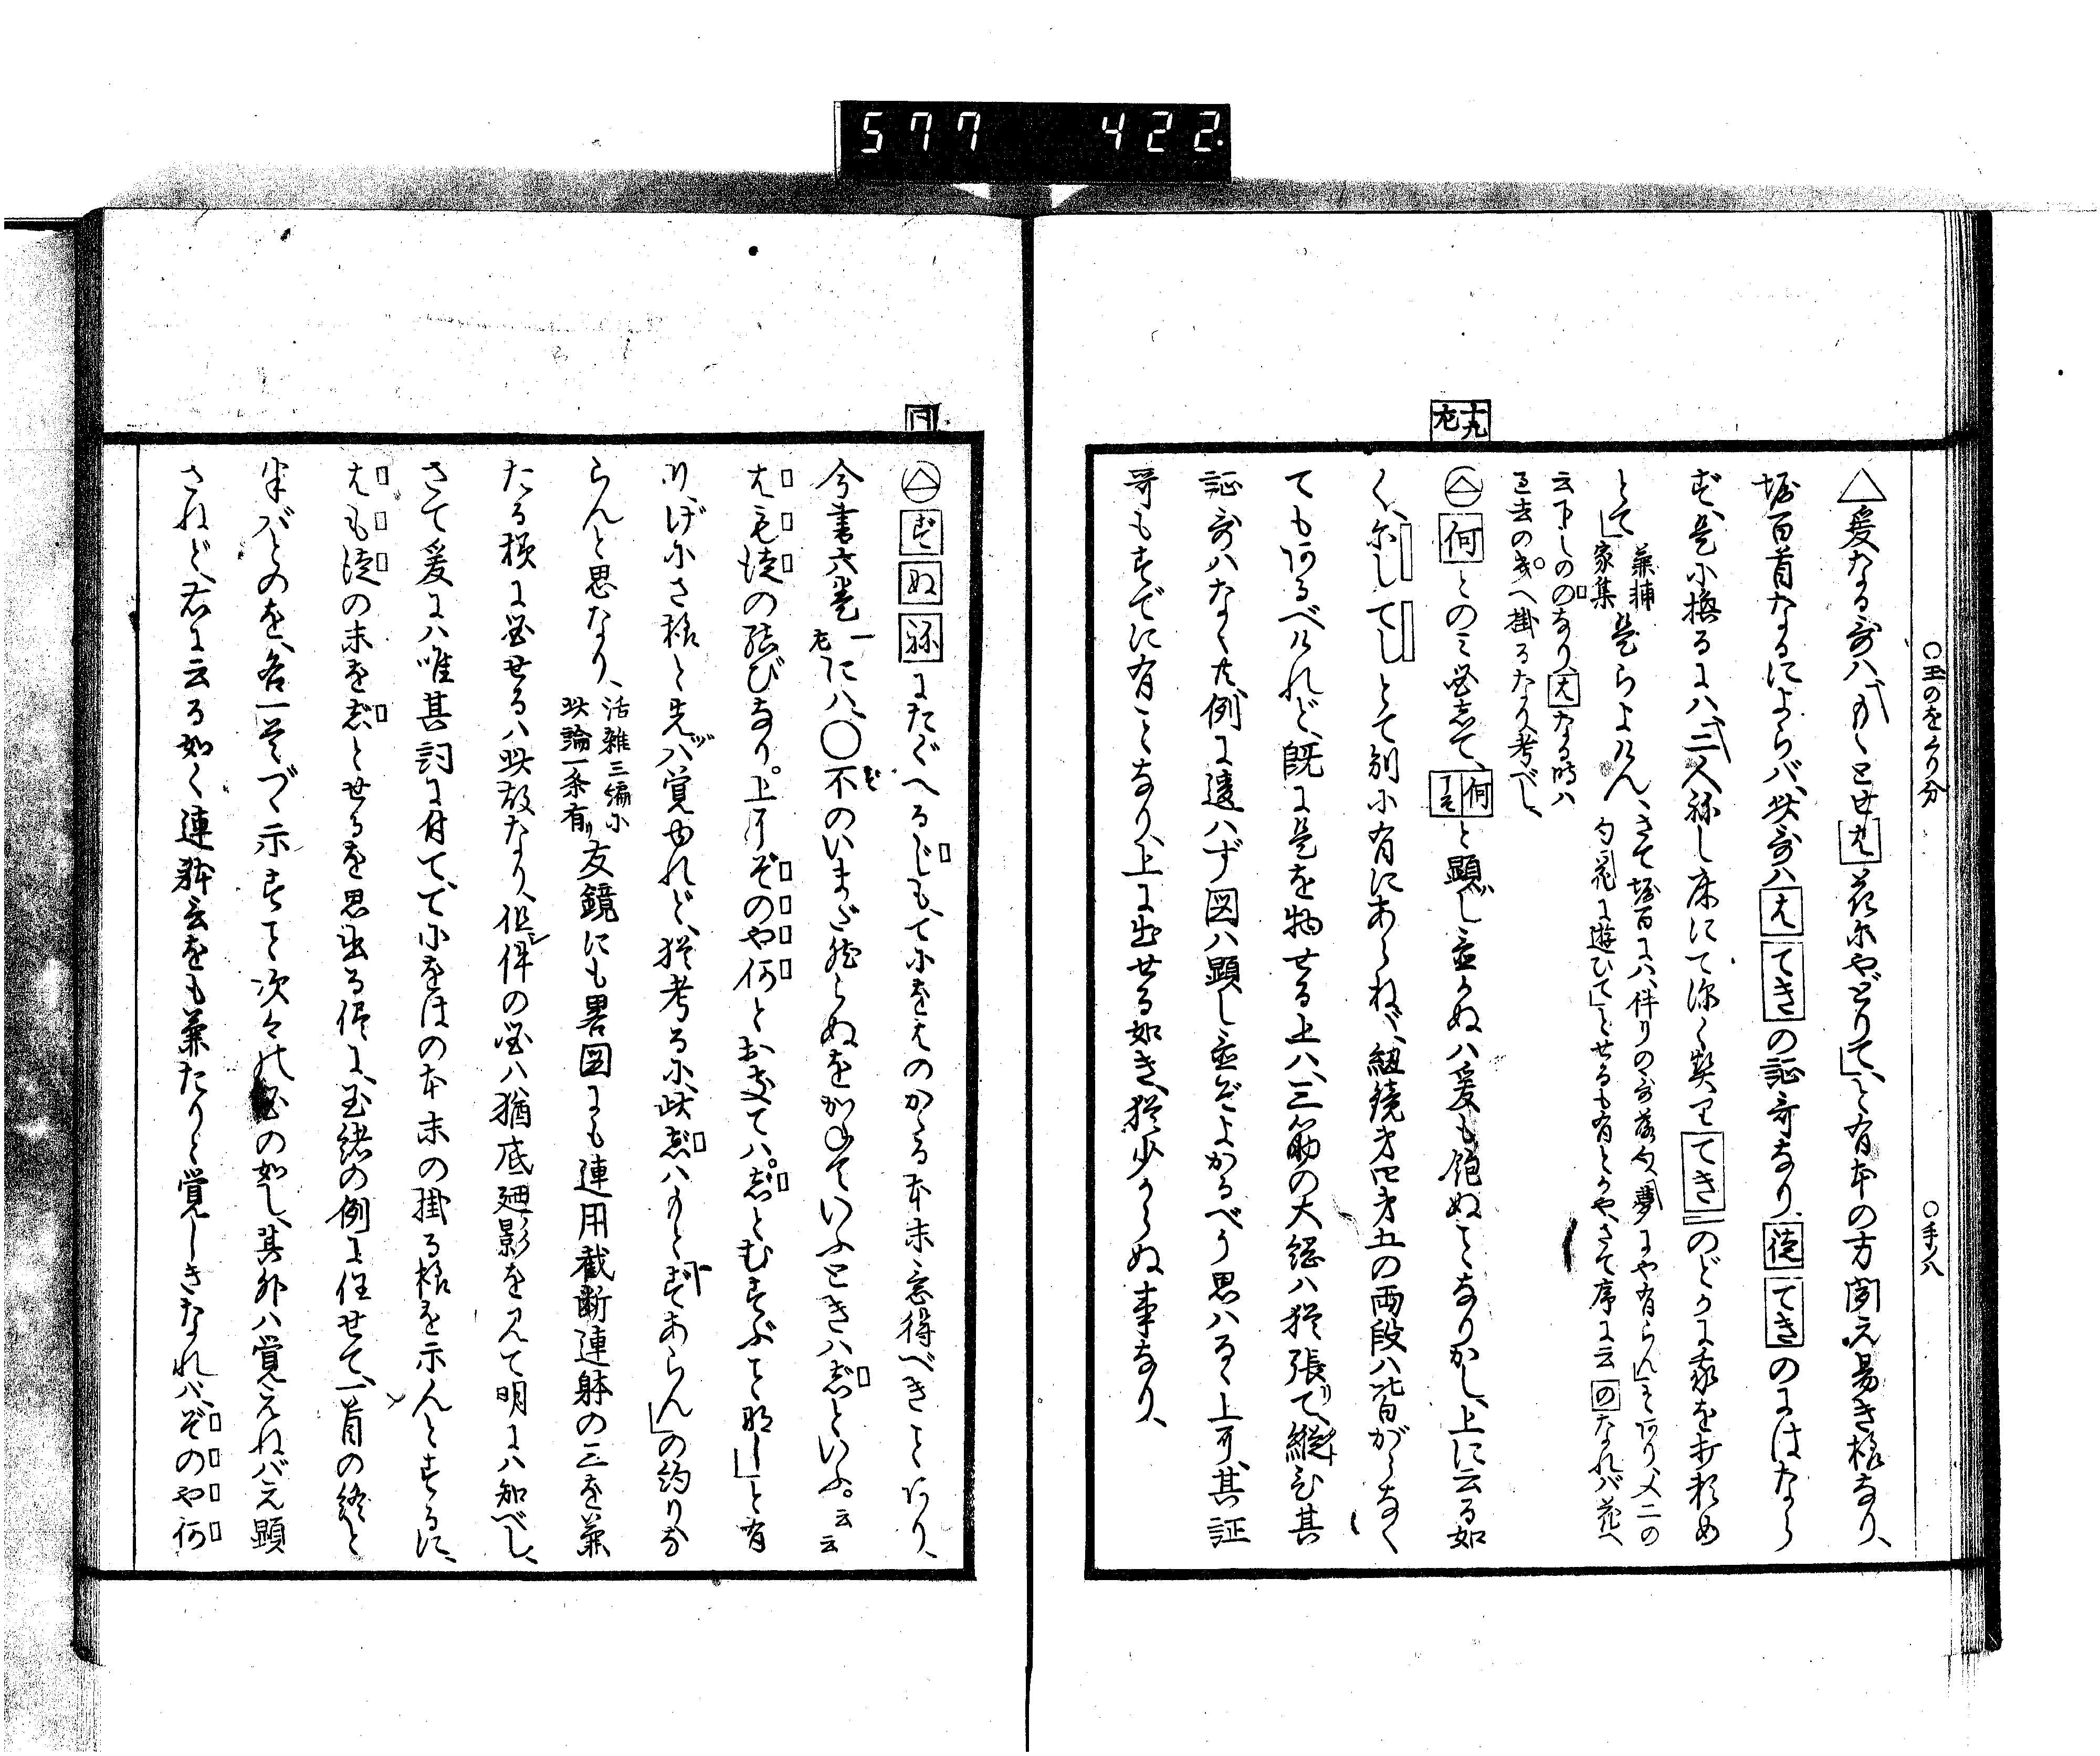 577 422.
○玉のをくり分 ○手八
△爰なる哥ハ「かくとせは花にやどりて」と有本の方聞え易き様なり、
堀百首なるによらバ、此哥ハはてきの証哥なり、徒てきのにはなら
ず、是に換るにハ「二人ねし床にて深く契りてきのどかに我を打頼め
とて」兼輔家集是らよけん、さて堀百にハ、伴りの哥落句「夢にや有らん」とあり、又二の
句「花に遊ひて」とせるも有とかや、さて序に云のなれバ花へ
云下しののなりはなる時ハ
過去のきへ掛るなり考べし、
十九左
何とのミ出して、何こそと顕し置かぬハ爰も飽ぬことなりかし、上に云る如
く、にしてしとて別に有にあらね、紐鏡才四才五の両段ハ皆がらなく
てもあるべけれど、既に是を物せる上ハ、三筋の大綱ハ猶張て、縦ひ其
証哥ハなく共、例に違ハず図ハ顕し置ぞよかるべう思ハるゝ上ニ、其証
哥もすでに有ことなり、上に出せる如き、猶少からぬ事なり、
同
ずぬねにたぐへるじも、てにをはのかゝる本末意得べきことあり、
今書六巻一左にハ、○不のいまだ然らぬをかねていふときハじといふ。云云
はも徒の結びなり。上にぞのや何とおきてハ。じとむすぶこと那し」と有
り、げにさ様と先ハ覚ゆれど、猶考るに、此じハもと「ずあらん」の約りな
らんと思なり、活雑三編に此論一条有り友鏡にも畧図にも連用截断連体の三を兼
たる様に出せるハ此故なり、但し伴の図ハ猶底廼影を見て明にハ知べし、
さて爰にハ唯其詞に付て、てにをはの本末の掛る様を示んとするに、
はも徒の末をじとせるを思出る侭に、玉緒の例に任せて、一首の終と
半バとのを、各一首づゝ示すこと次々の図の如し、其外ハ覚えねバえ顕
さねど、右に云る如く連体言をも兼たりと覚しきなれバ、ぞのや何